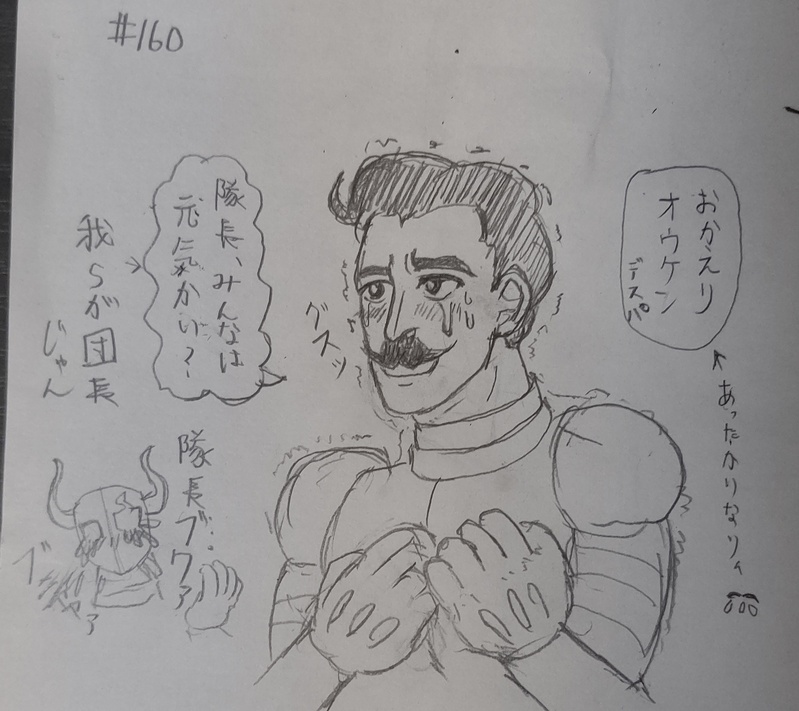 #160
おかえり
オウケン
デスパ
あったかりなりィ
隊長、みんなは
元気かい?
我らが団長
じゃん
グスッ
隊長ブワァ